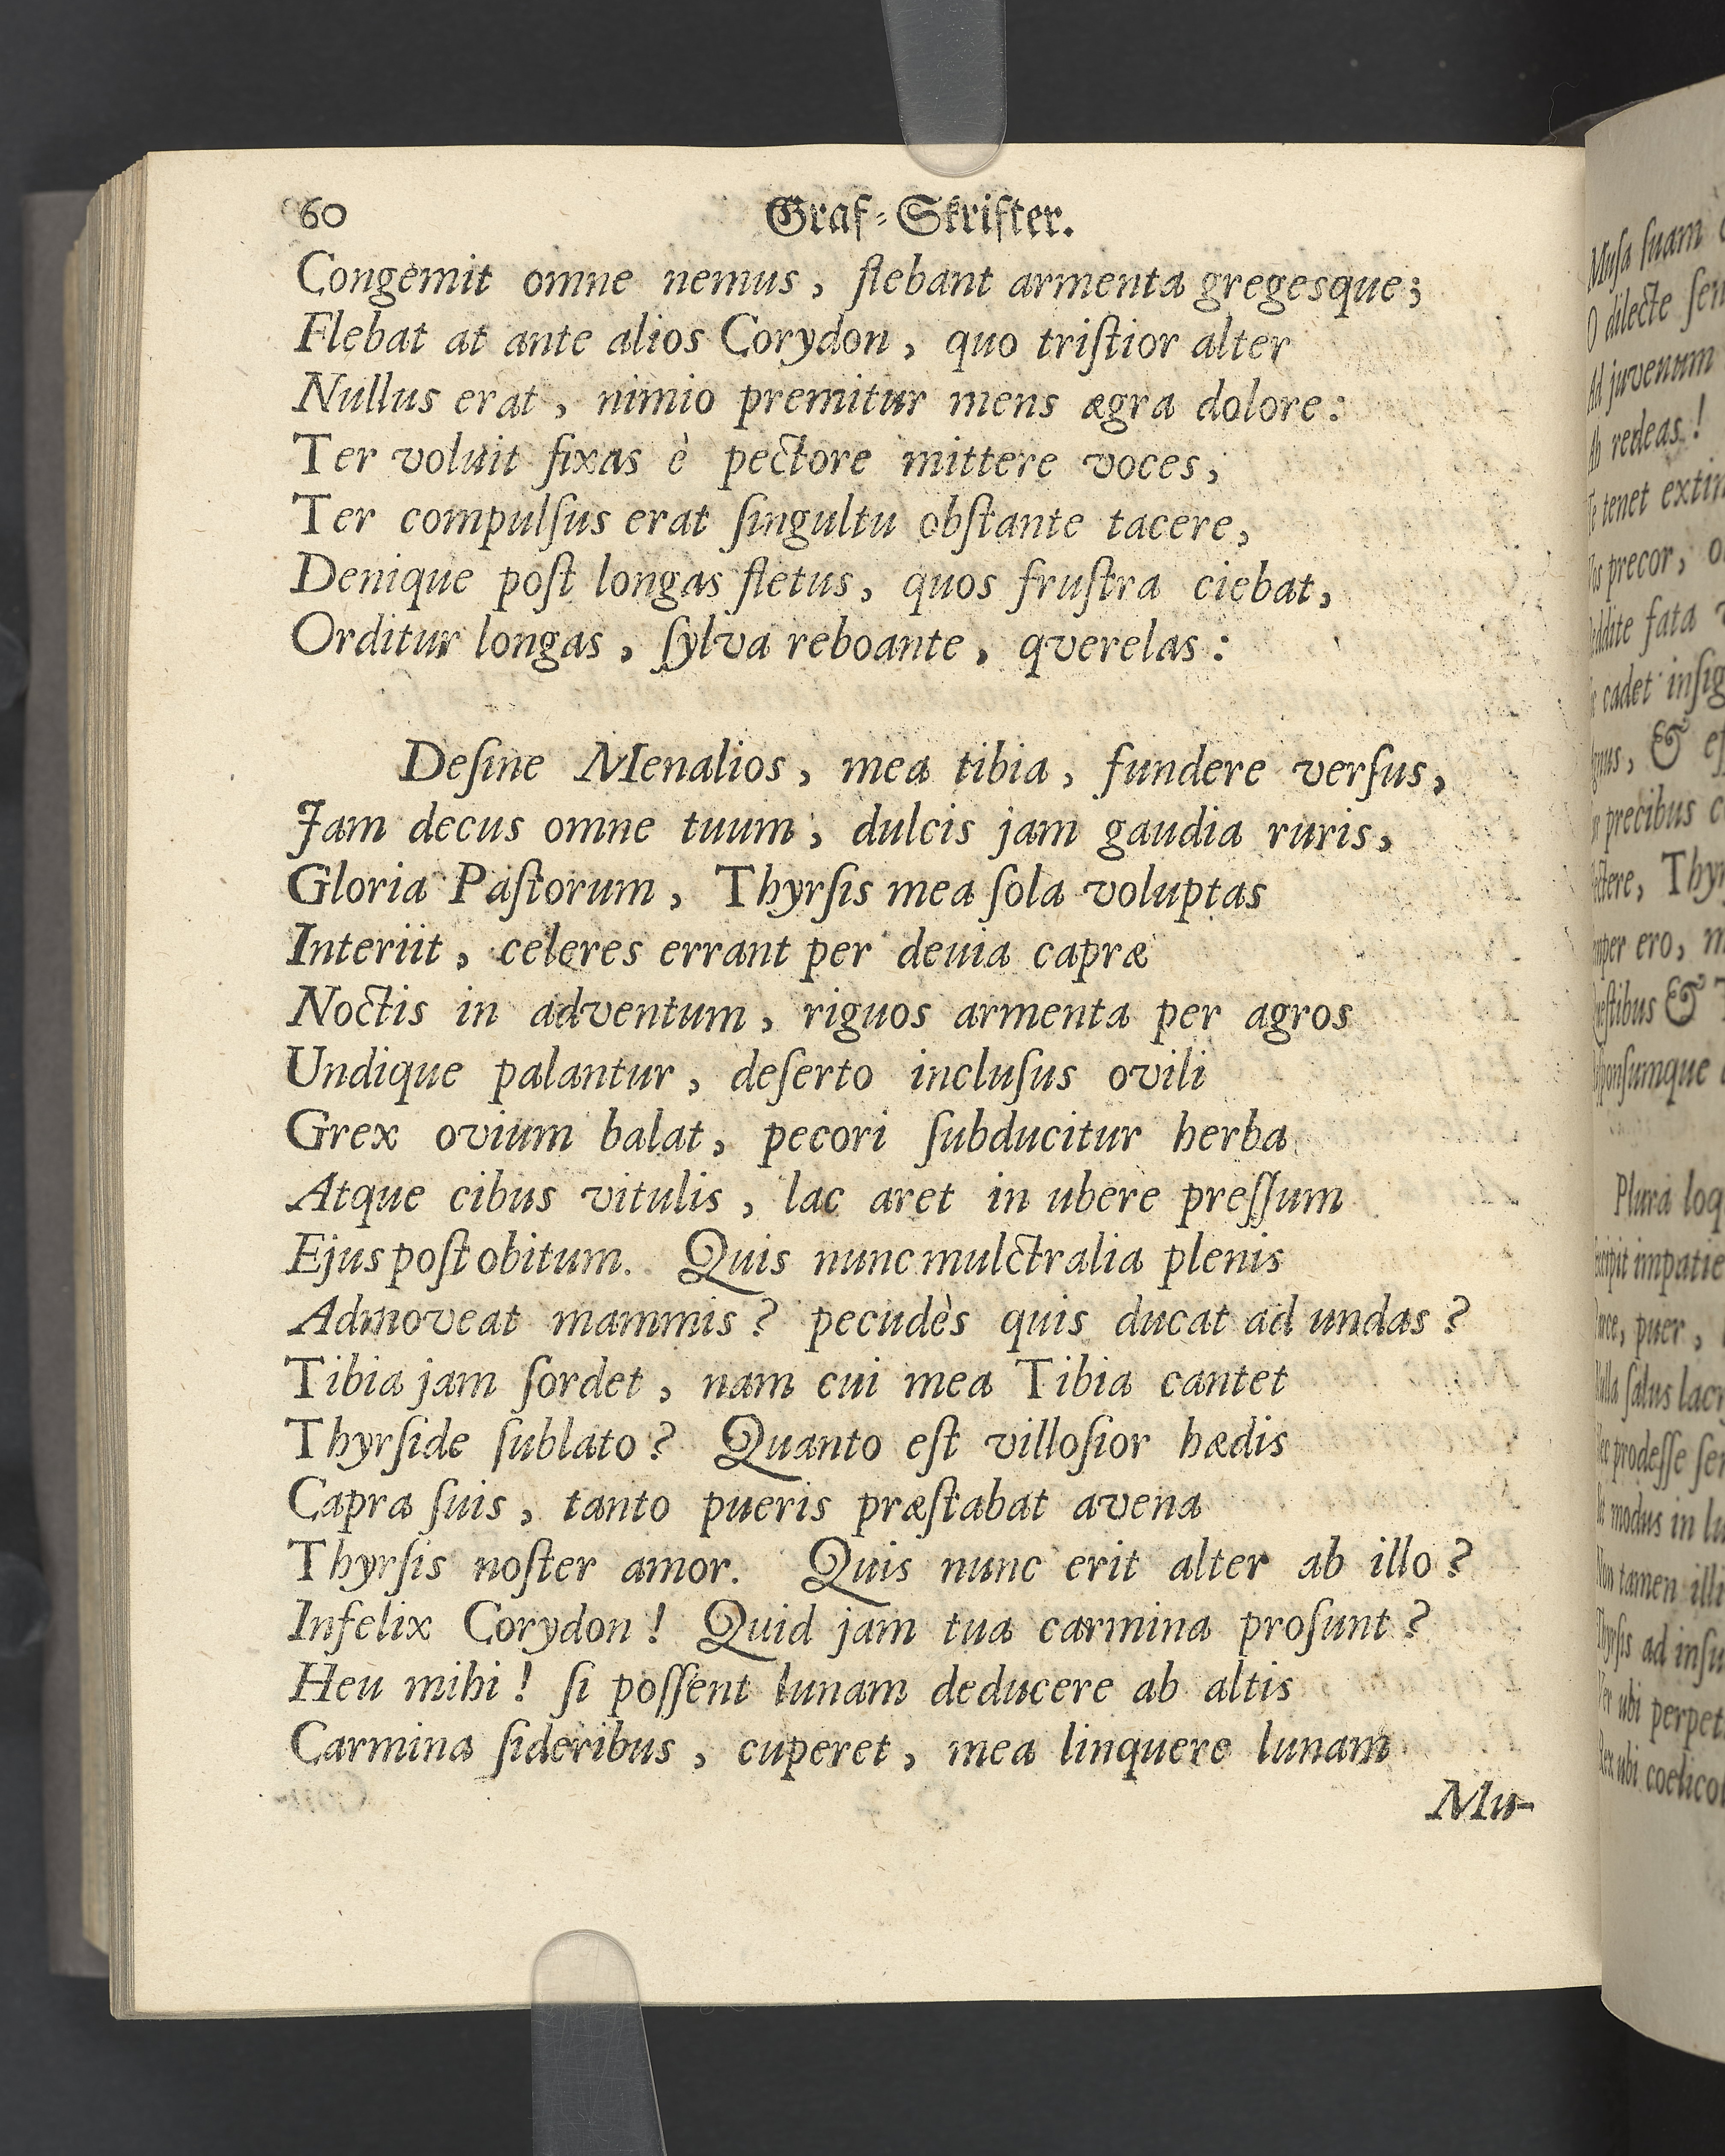 60 Graf-Skrifter.
Congemit omne nemus, flebant armenta gregesque;
Flebat at ante alios Corydon, quo triſtior alter
Nullus erat, nimio premitur mens ægra dolore:
Ter voluit fixas è pectore mittere voces,
Ter compulſus erat ſingultu obſtante tacere,
Denique poſt longas fletus, quos fruſtra ciebat,
Orditur longas, ſylva reboante, qverelas:
Deſine Menalios, mea tibia, fundere verſus,
Jam decus omne tuum, dulcis jam gaudia ruris,
Gloria Paſtorum, Thyrſis mea ſola voluptas
Interiit, celeres errant per deuia capræ
Noctis in adventum, riguos armenta per agros
Undique palantur, deſerto incluſus ovili
Grex ovium balat, pecori ſubducitur herba
Atque cibus vitulis, lac aret in ubere preſſum
Ejus poſt obitum. Quis nunc mulctralia plenis
Admoveat mammis? pecudès quis ducat ad undas?
Tibia jam ſordet, nam cui mea Tibia cantet
Thyrſide ſublato? Quanto eſt villoſior hædis
Capra ſuis, tanto pueris præſtabat avena
Thyrſis noſter amor. Quis nunc erit alter ab illo?
Infelix Corydon! Quid jam tua carmina proſunt?
Heu mihi! ſi poſſent lunam deducere ab altis
Carmina ſideribus, cuperet, mea linquere lunam
Mu-
Muſa ſuam
O dilecte
Ad juvenum
redeas!
tenet
precor,
fata
cadet
&
precibus
Thyr
ero,
&
Plura loq
impatie
puer,
ſalus
prodeſſe
modus in
tamen illi
ad
ubi perpet
ubi